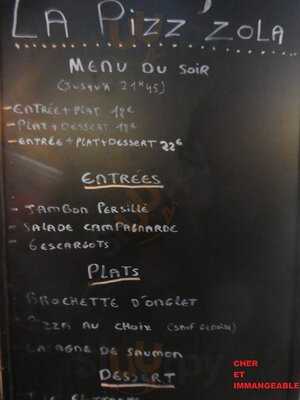 LA PIZZ'ZOLA
MENU DU SOIR
(JUSQU'A 21H45)
- ENTRÉE + PLAT 18€
- PLAT + DESSERT 18€
- ENTRÉE + PLAT + DESSERT 22€
ENTRÉES
- JAMBON PERSILLÉ
- SALADE CAMPAGNARDE
- 6 ESCARGOTS
PLATS
- BROCHETTE D'ONGLET
- PIZZA AU CHOIX (SAUF
- LASAGNE DE SAUMON
DESSERT
CHER
ET
IMMANGEABLE